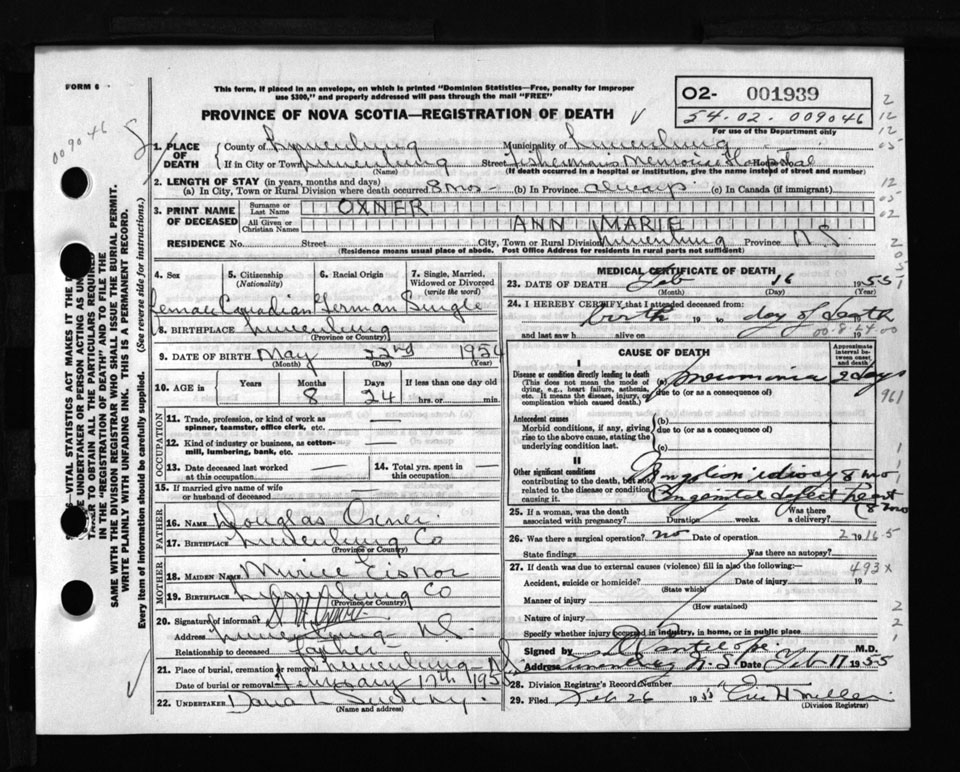 FORM 6
This form, if placed in an envelope, on which is printed "Dominion Statistics—Free, penalty for improper
use $300," and properly addressed will pass through the mail "FREE"
PROVINCE OF NOVA SCOTIA—REGISTRATION OF DEATH
O2- 001939
54-02-009046
For use of the Department only
009046
1. PLACE OF DEATH
County of Lunenburg Municipality of Lunenburg
If in City or Town Lunenburg (Name) Street Fishermans Memorial Hospital
(If death occurred in a hospital or institution, give the name instead of street and number)
2. LENGTH OF STAY (in years, months and days)
(a) In City, Town or Rural Division where death occurred 8 mos (b) In Province always (c) In Canada (if immigrant)
3. PRINT NAME OF DECEASED
Surname or Last Name OXNER
All Given or Christian Names ANN MARIE
RESIDENCE No. Street City, Town or Rural Division Lunenburg Province N.S
(Residence means usual place of abode. Post Office Address for residents in rural parts not sufficient)
4. Sex 5. Citizenship (Nationality) 6. Racial Origin 7. Single, Married, Widowed or Divorced (write the word)
Female Canadian German Single
8. BIRTHPLACE Lunenburg
(Province or Country)
9. DATE OF BIRTH May 22nd 1954
(Month) (Day) (Year)
10. AGE in Years Months Days If less than one day old
8 24 hrs. or min.
OCCUPATION
11. Trade, profession, or kind of work as
spinner, teamster, office clerk, etc. —
12. Kind of industry or business, as cotton-
mill, lumbering, bank, etc. —
13. Date deceased last worked
at this occupation — 14. Total yrs. spent in
this occupation —
15. If married give name of wife
or husband of deceased —
FATHER
16. NAME Douglas Oxner
17. BIRTHPLACE Lunenburg Co
(Province or Country)
MOTHER
18. MAIDEN NAME
19. BIRTHPLACE Lunenburg Co
(Province or Country)
20. Signature of informant
Address Lunenburg N.S.
Relationship to deceased Father
21. Place of burial, cremation or removal Lunenburg N.S
Date of burial or removal February 17th 1955
22. UNDERTAKER Dana L
(Name and address)
MEDICAL CERTIFICATE OF DEATH
23. DATE OF DEATH Feb 16 1955
(Month) (Day) (Year)
24. I HEREBY CERTIFY, that I attended deceased from:
birth 19 to day of death
and last saw h alive on 19
CAUSE OF DEATH
Approximate interval between onset and death
I
Disease or condition directly leading to death
(This does not mean the mode of
dying, e.g., heart failure, asthenia,
etc. It means the disease, injury, or
complication which caused death.)
(a) Pneumonia 2 days
due to (or as a consequence of)
961
Antecedent causes
Morbid conditions, if any, giving
rise to the above cause, stating the
underlying condition last.
(b)
due to (or as a consequence of)
(c)
II
Other significant conditions
contributing to the death, but not
related to the disease or condition
causing it.
Mongolian idiocy 8 mo
Congenital defect heart
(8 mo
25. If a woman, was the death
associated with pregnancy? Duration weeks. Was there
a delivery?
26. Was there a surgical operation? no Date of operation 2 16 5
State findings Was there an autopsy?
27. If death was due to external causes (violence) fill in also the following:—
493x
Accident, suicide or homicide? Date of injury 19
(State which)
Manner of injury
(How sustained)
Nature of injury
Specify whether injury occurred in industry, in home, or in public place
Signed by M.D.
Address Lunenburg N.S Date Feb 17 1955
28. Division Registrar's Record Number
29. Filed Feb 26 1955
(Division Registrar)
SAME WITH THE DIVISION REGISTRAR WHO SHALL ISSUE THE BURIAL PERMIT.
WRITE PLAINLY WITH UNFADING INK. THIS IS A PERMANENT RECORD.
Every item of information should be carefully supplied. (See reverse side for instructions.)